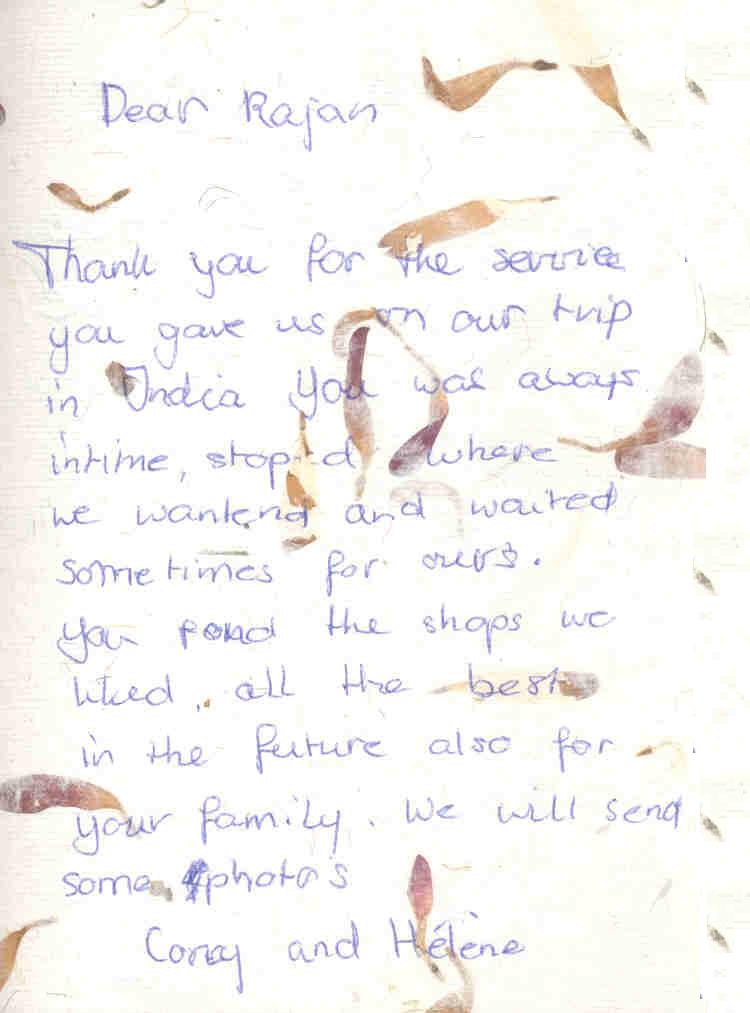 Dear Rajan
Thank you for the service
you gave us on our trip
in India You was aways
intime, stoped where
we wantend and waited
sometimes for ours.
You fond the shops we
liked, all the best
in the future also for
your family. We will send
some photo's
and Hélène